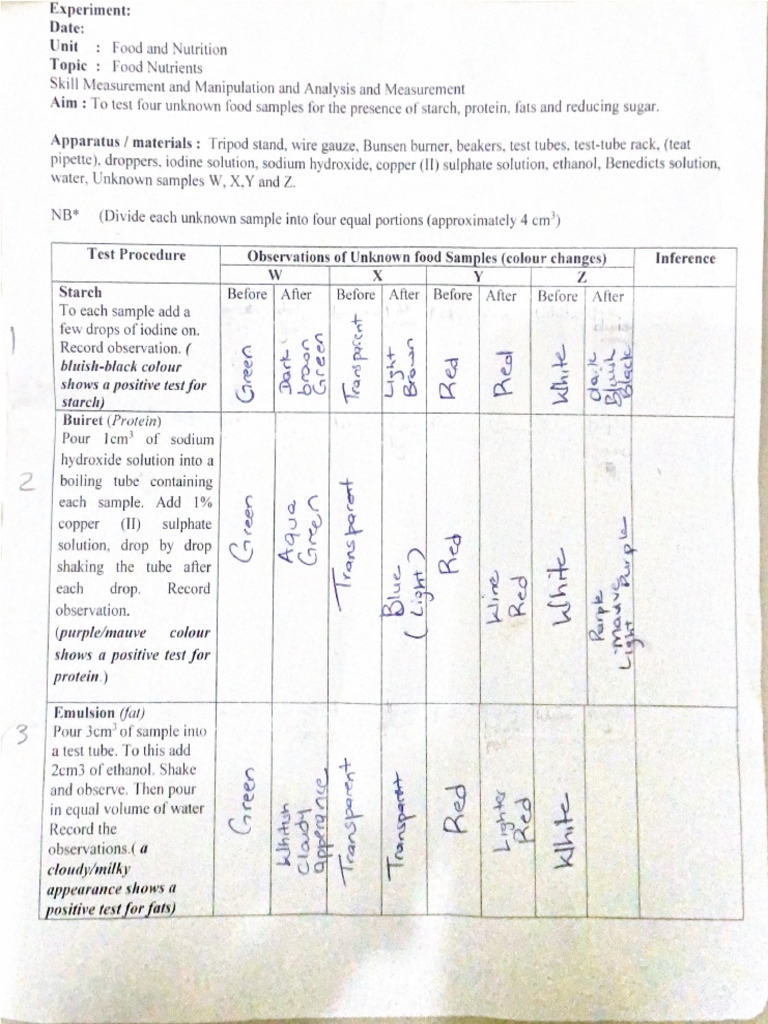 Experiment:
Date:
Unit : Food and Nutrition
Topic : Food Nutrients
Skill Measurement and Manipulation and Analysis and Measurement
Aim : To test four unknown food samples for the presence of starch, protein, fats and reducing sugar.
Apparatus / materials : Tripod stand, wire gauze, Bunsen burner, beakers, test tubes, test-tube rack, (teat
pipette), droppers, iodine solution, sodium hydroxide, copper (II) sulphate solution, ethanol, Benedicts solution,
water, Unknown samples W, X,Y and Z.
NB* (Divide each unknown sample into four equal portions (approximately 4 cm³)
Test Procedure Observations of Unknown food Samples (colour changes) Inference
W X Y Z
Before After Before After Before After Before After
1
Starch
To each sample add a
few drops of iodine on.
Record observation. (
bluish-black colour
shows a positive test for
starch)
Green
Dark
brown
Green
Transparent
Light
Brown
Red
Red
White
dark
Bluish
Black
2
Buiret (Protein)
Pour 1cm³ of sodium
hydroxide solution into a
boiling tube containing
each sample. Add 1%
copper (II) sulphate
solution, drop by drop
shaking the tube after
each drop. Record
observation.
(purple/mauve colour
shows a positive test for
protein.)
Green
Aqua
Green
Transparent
Blue
(Light)
Red
Wine
Red
White
Purple
-mauve
Light Purple
3
Emulsion (fat)
Pour 3cm³ of sample into
a test tube. To this add
2cm3 of ethanol. Shake
and observe. Then pour
in equal volume of water
Record the
observations.( a
cloudy/milky
appearance shows a
positive test for fats)
Green
Whitish
Cloudy
apperance
Transparent
Transparent
Red
Lighter
Red
White